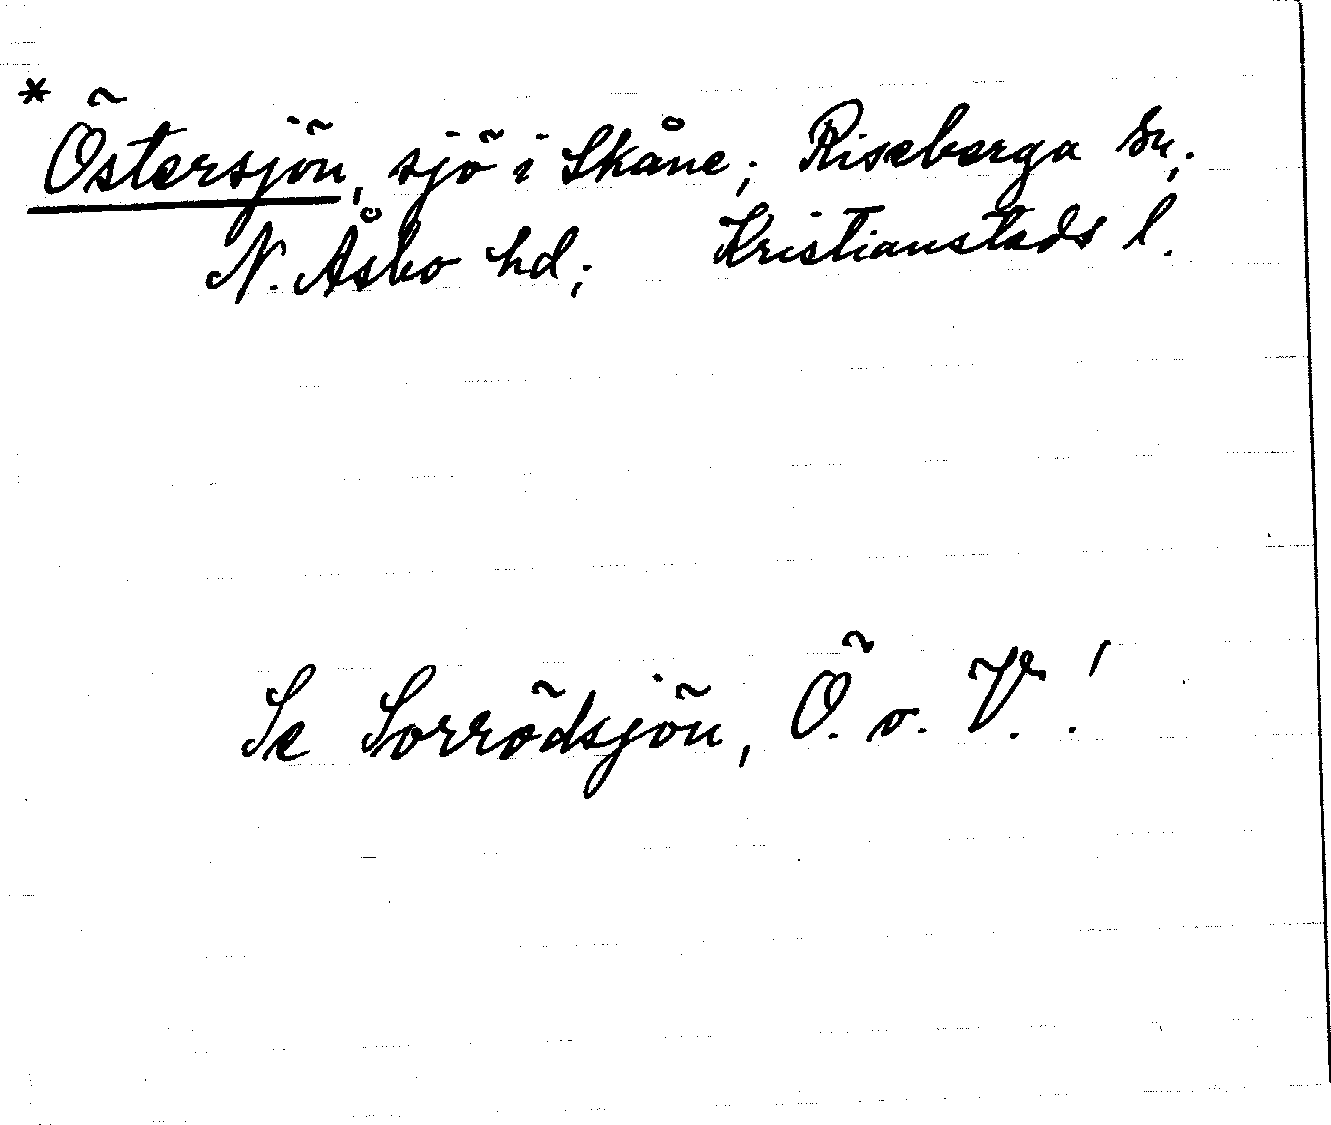 * Östersjön, sjö i Skåne; Riseberga sn;
N. Åsbo hd; Kristianstads l.
Se Sorrödsjön, Ö. o. V.!